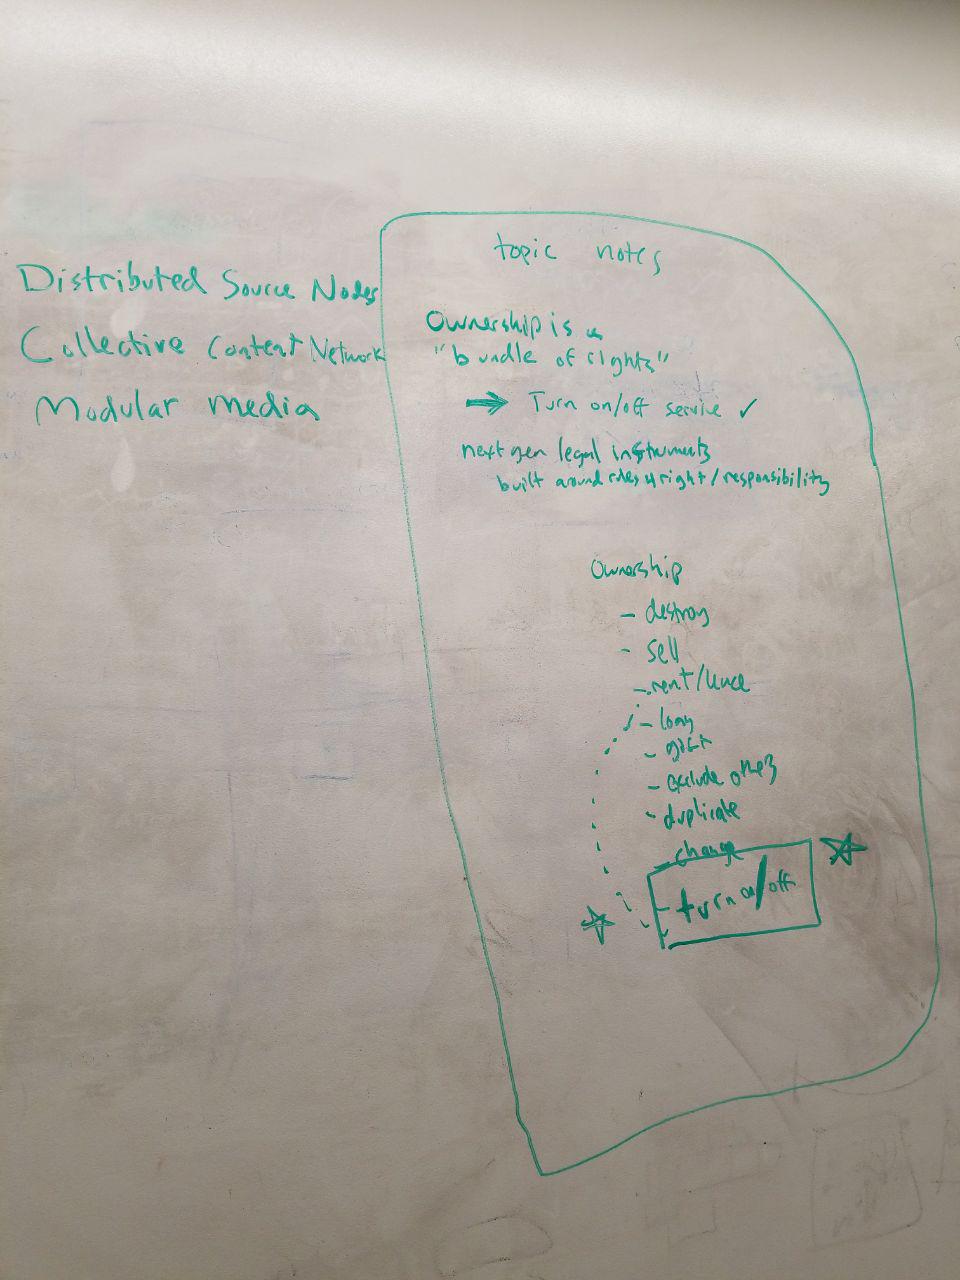 Distributed Source Nodes
Collective Content Network
Modular Media
topic notes
Ownership is a
"bundle of rights"
→ Turn on/off service ✓
next gen legal instruments
built around rules right/responsibility
Ownership
- destroy
- sell
- rent/
- loan
-
- exclude others
- duplicate
- change
- turn on/off